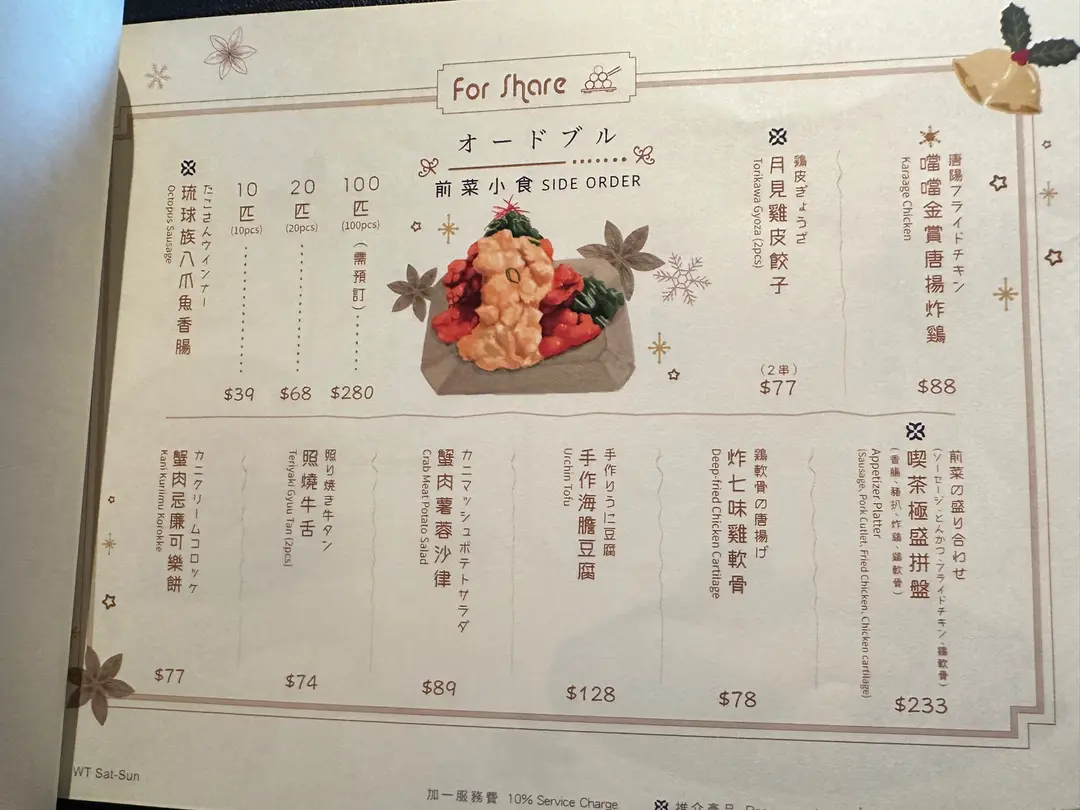 For Share
オードブル
前菜小食 SIDE ORDER
唐陽フライドチキン
噹噹金賞唐揚炸鷄
Karaage Chicken
$88
鶏皮ぎょうざ
月見雞皮餃子
Torikawa Gyoza (2pcs)
(2串)
$77
100
匹
(100pcs)
(需預訂)
$280
20
匹
(20pcs)
$68
10
匹
(10pcs)
$39
たこさんウィンナー
琉球族八爪魚香腸
Octopus Sausage
前菜の盛り合わせ
(ソーセージ、とんかつ、フライドチキン、鶏軟骨)
喫茶極盛拼盤
(香腸、豬扒、炸雞、雞軟骨)
Appetizer Platter
(Sausage, Pork Cutlet, Fried Chicken, Chicken cartilage)
$233
鶏軟骨の唐揚げ
炸七味雞軟骨
Deep-fried Chicken Cartilage
$78
手作りうに豆腐
手作海膽豆腐
Urchin Tofu
$128
カニマッシュポテトサラダ
蟹肉薯蓉沙律
Crab Meat Potato Salad
$89
照り焼き牛タン
照燒牛舌
Teriyaki Gyuu Tan (2pcs)
$74
カニクリームコロッケ
蟹肉忌廉可樂餅
Kani Kuriimu Korokke
$77
WT Sat-Sun
加一服務費 10% Service Charge
推介產品